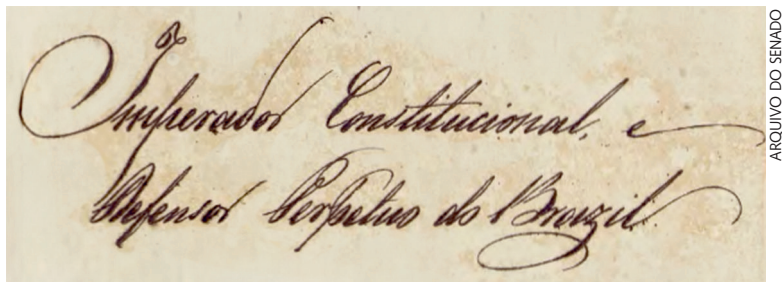 Imperador Constitucional, e
Defensor Perpetuo do Brazil.
ARQUIVO DO SENADO